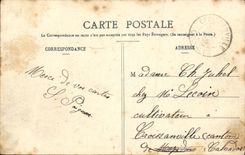 CARTE POSTALE
La Correspondance au recto n'est pas acceptée par tous les Pays Étrangers. (Se renseigner à la Poste).
CORRESPONDANCE
ADRESSE
Madame Ch. Juhel
Merci de vos cartes
chez Mr Lecoin
cultivateur
Croissanville (canton
de Calvados